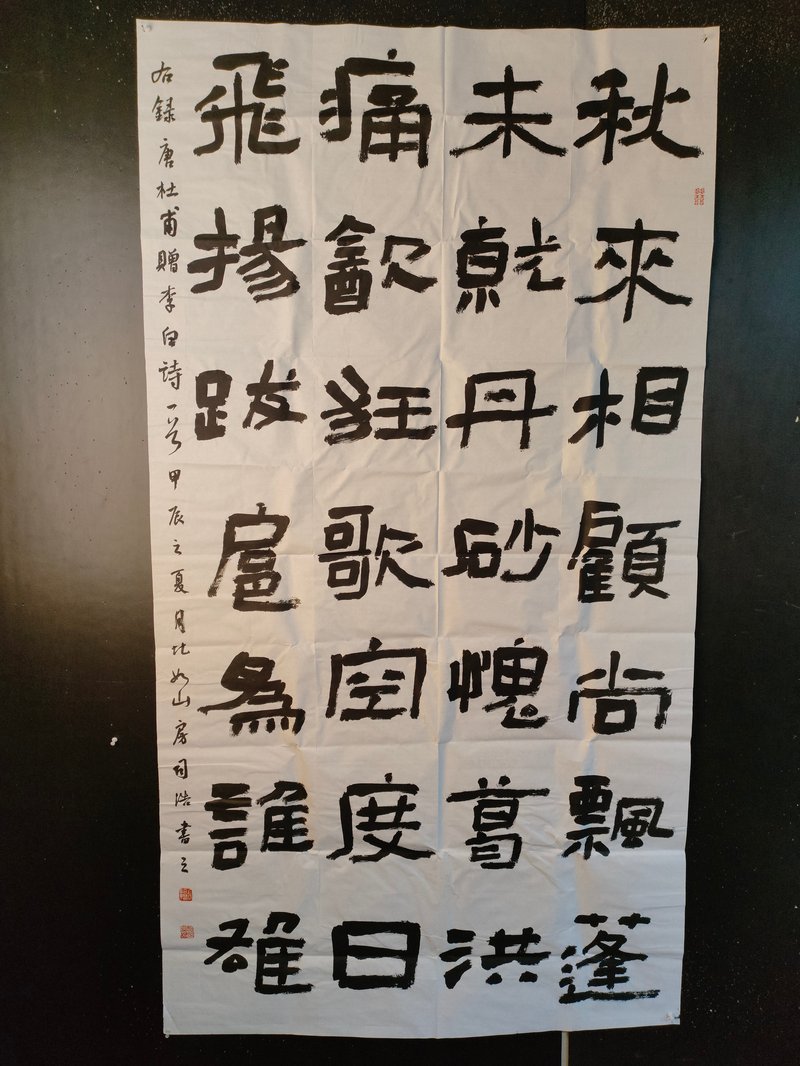 秋來相顧尚飄蓬
未就丹砂愧葛洪
痛飲狂歌空度日
飛揚跋扈為誰雄
右錄唐杜甫贈李白詩一首甲辰之夏月於如山房司浩書之